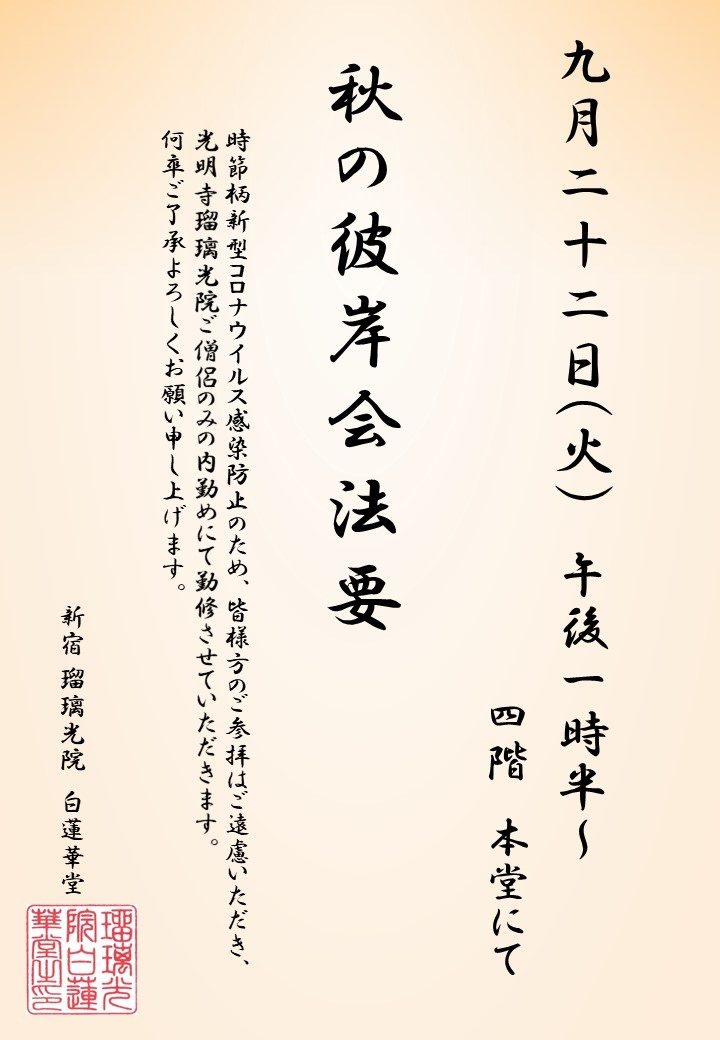 九月二十二日(火) 午後一時半〜
四階 本堂にて
秋の彼岸会法要
時節柄新型コロナウイルス感染防止のため、皆様方のご参拝はご遠慮いただき、
光明寺瑠璃光院ご僧侶のみの内勤めにて勤修させていただきます。
何卒ご了承よろしくお願い申し上げます。
新宿 瑠璃光院 白蓮華堂
瑠璃光
院白蓮
華堂之印